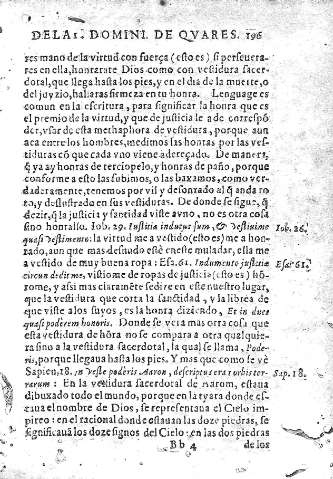 DELA 1. DOMINI. DE QVARES. 196
res mano de la virtud con fuerça (esto es) si perseuera-
res en ella, honrarate Dios como con vestidura sacer-
dotal, que llega hasta los pies, y en el dia de la muerte, o
del juyzio, hallaras firmeza en tu honra. Lenguage es
comun en la escritura, para significar la honra que es
el premio de la virtud, y que de justicia le ha de correspõ
der, vsar desta methaphora de vestidura, porque aun
aca entre los hombres, medimos las honras por las ves-
tiduras cõ que cada vno viene adereçado. De manera,
q̃ ya ay honras de terciopelo, y honras de paño, porque
conforme a esto las subimos, o las baxamos, como ver-
daderamente, tenemos por vil y desonrado al q̃ anda ro
to, y deslustrado en sus vestiduras. De donde se sigue, q̃
dezir, q̃ la justicia y santidad viste a vno, no es otra cosa
sino honrallo. Iob. 29. Iustitia indutus sum, & vestiuit me
quasi vestimento: la virtud me a vestido (esto es) me a hon-
rado, aun que mas desnudo esté en este muladar, ella me
a vestido de muy buena ropa: Esa. 61. Indumento justitiæ
circundedit me, vistiome de ropas de justicia (esto es) hõ-
rome, y assi mas claramẽte se dize en este nuestro lugar,
que la vestidura que corta la sanctidad, y la librea de
que viste a los suyos, es la honra diziendo, Et in duce
quasi poderem honoris. Donde se vera mas otra cosa que
esta vestidura de hõra no se compara a otra qualquie-
ra sino a la vestidura sacerdotal, la qual se llama, Pode-
ris, porque llegaua hasta los pies. Y mas que como se vè
Sapien. 18. in veste poderis Aaron, descriptus erat orbis ter-
rarum: En la vestidura sacerdotal de Aarom, estaua
dibuxado todo el mundo, porque en la tyara donde es-
taua el nombre de Dios, se representaua el Cielo im-
pireo: en el racional donde estauan las doze piedras, se
significauã los doze signos del Cielo: en las dos piedras
Iob. 26.
Esai 61.
Sap. 18.
B b 4 de los